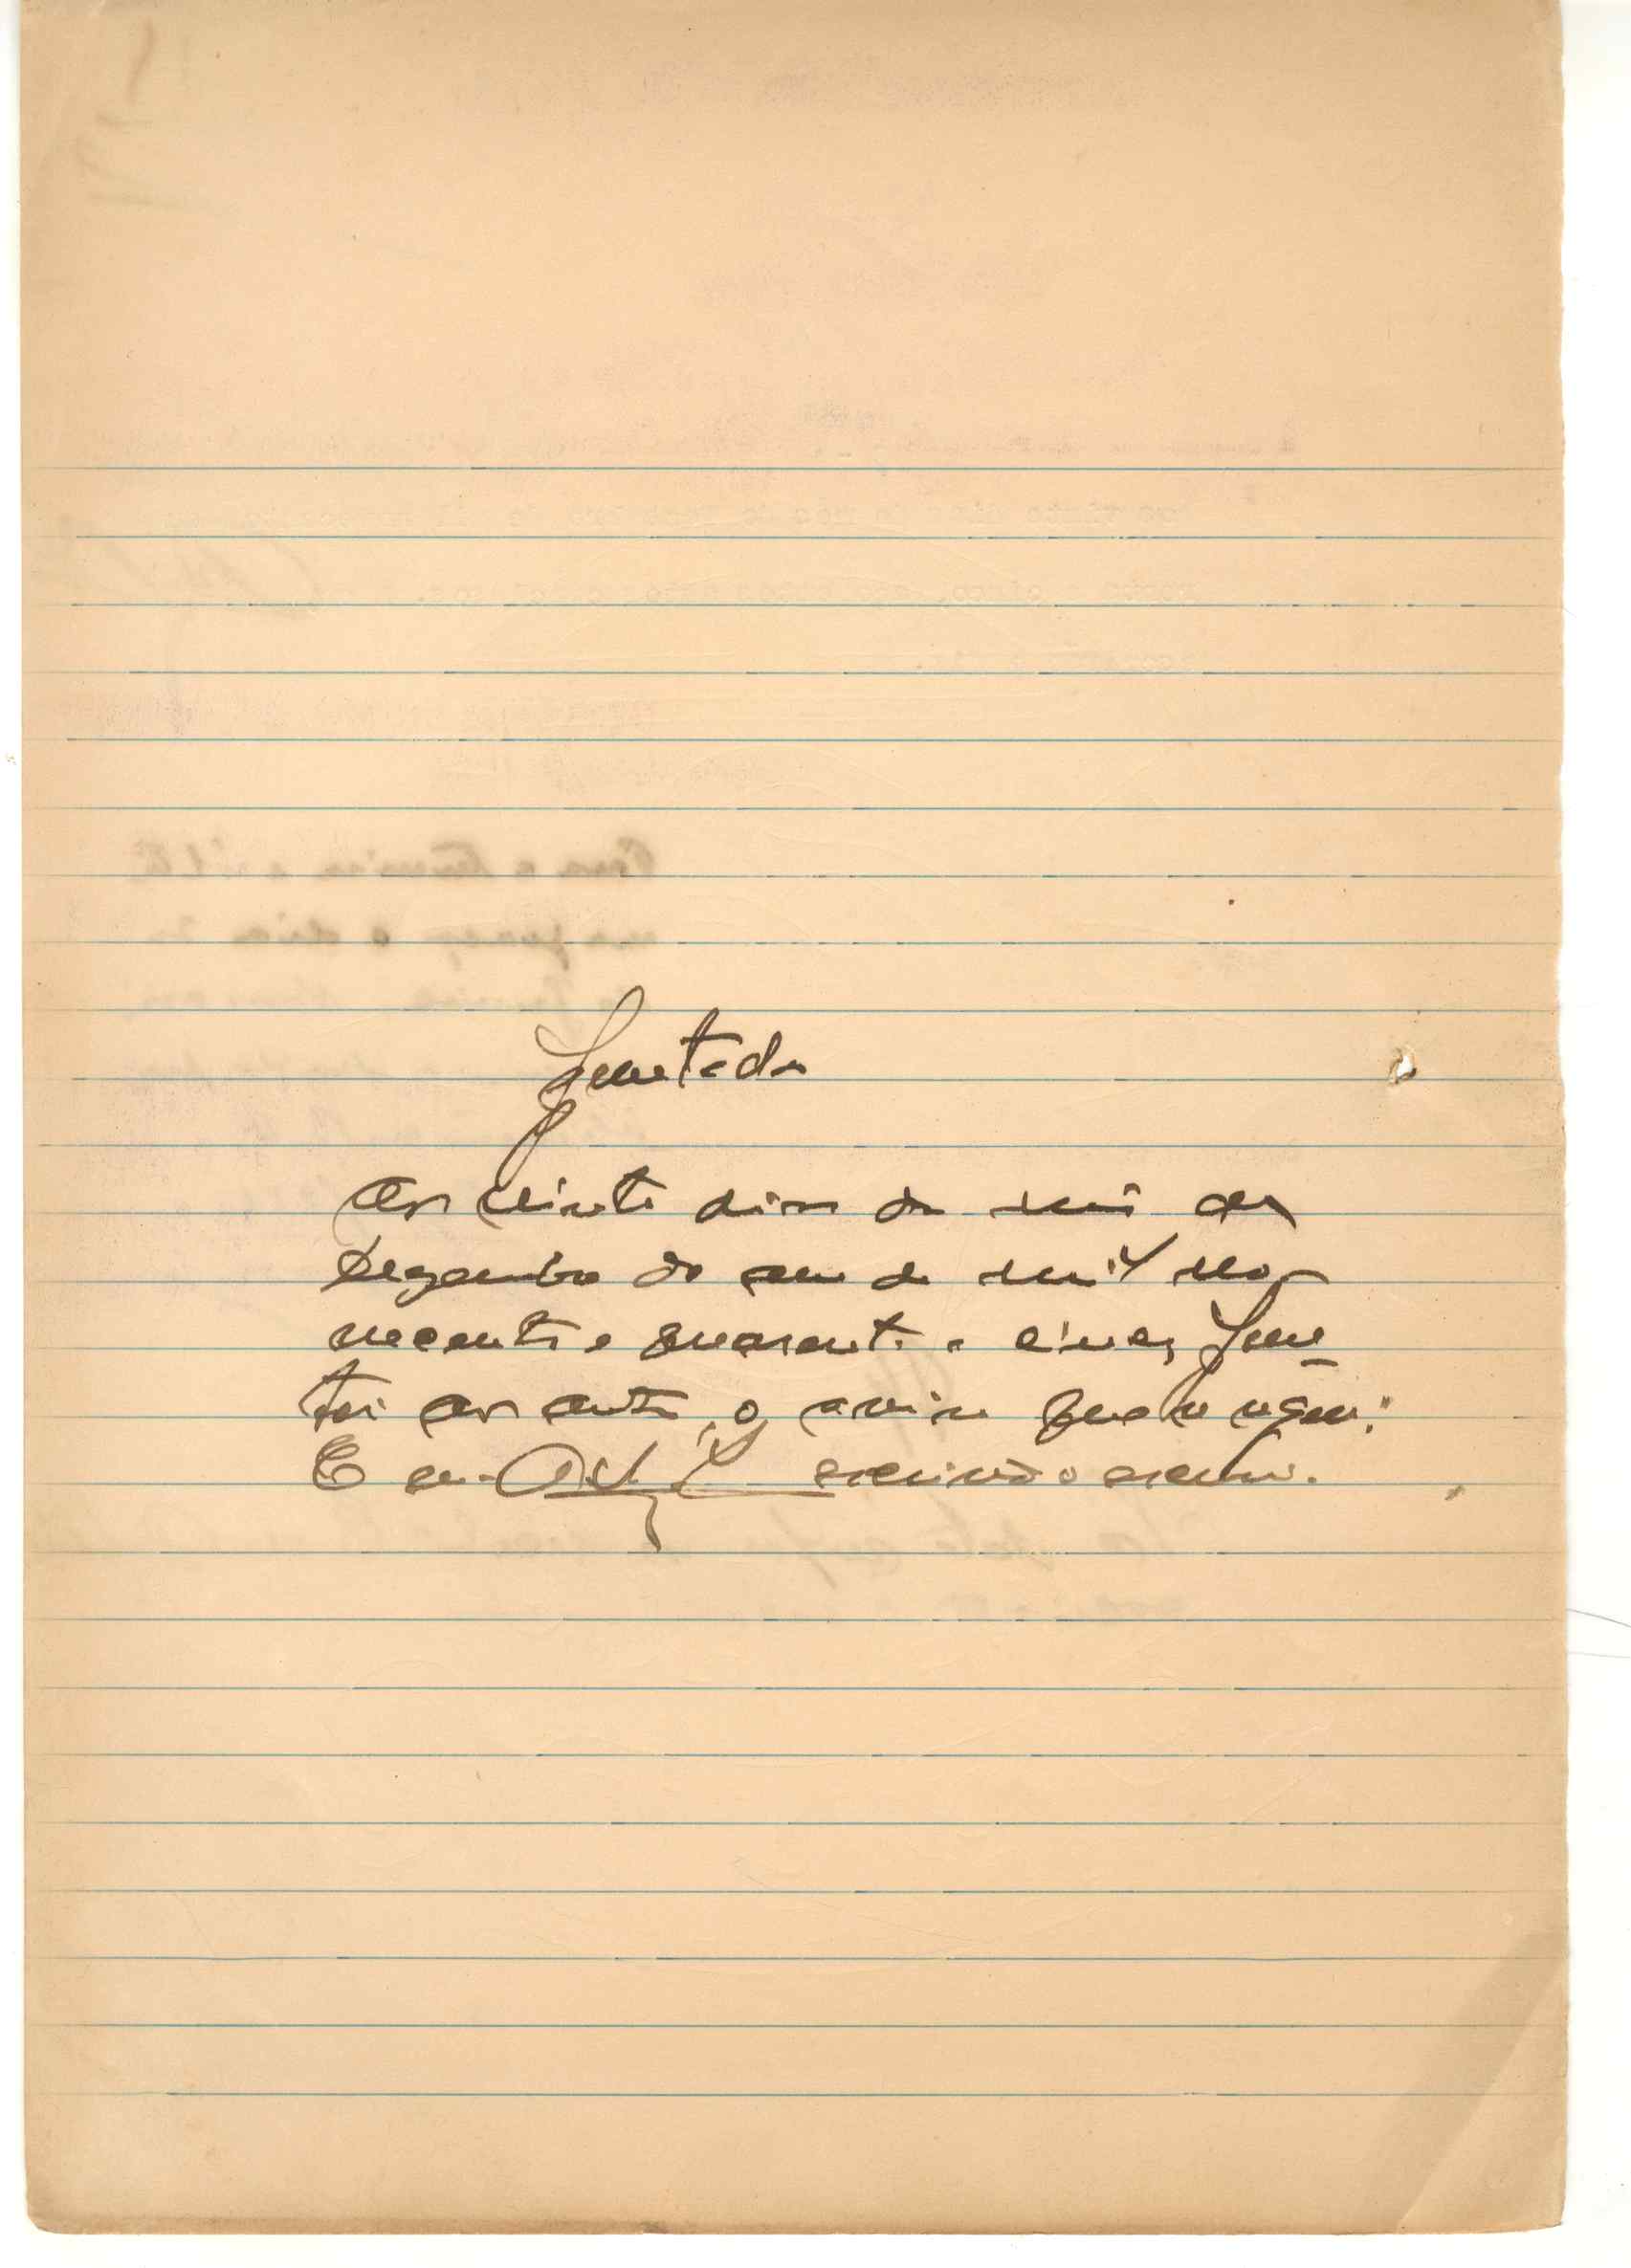 Juntada
Aos vinte dias do mês de
Dezembro do ano de mil no-
vecentos e quarenta e cinco, jun-
tei aos autos o aviso que se vem:
E eu escrivão o escrevi.